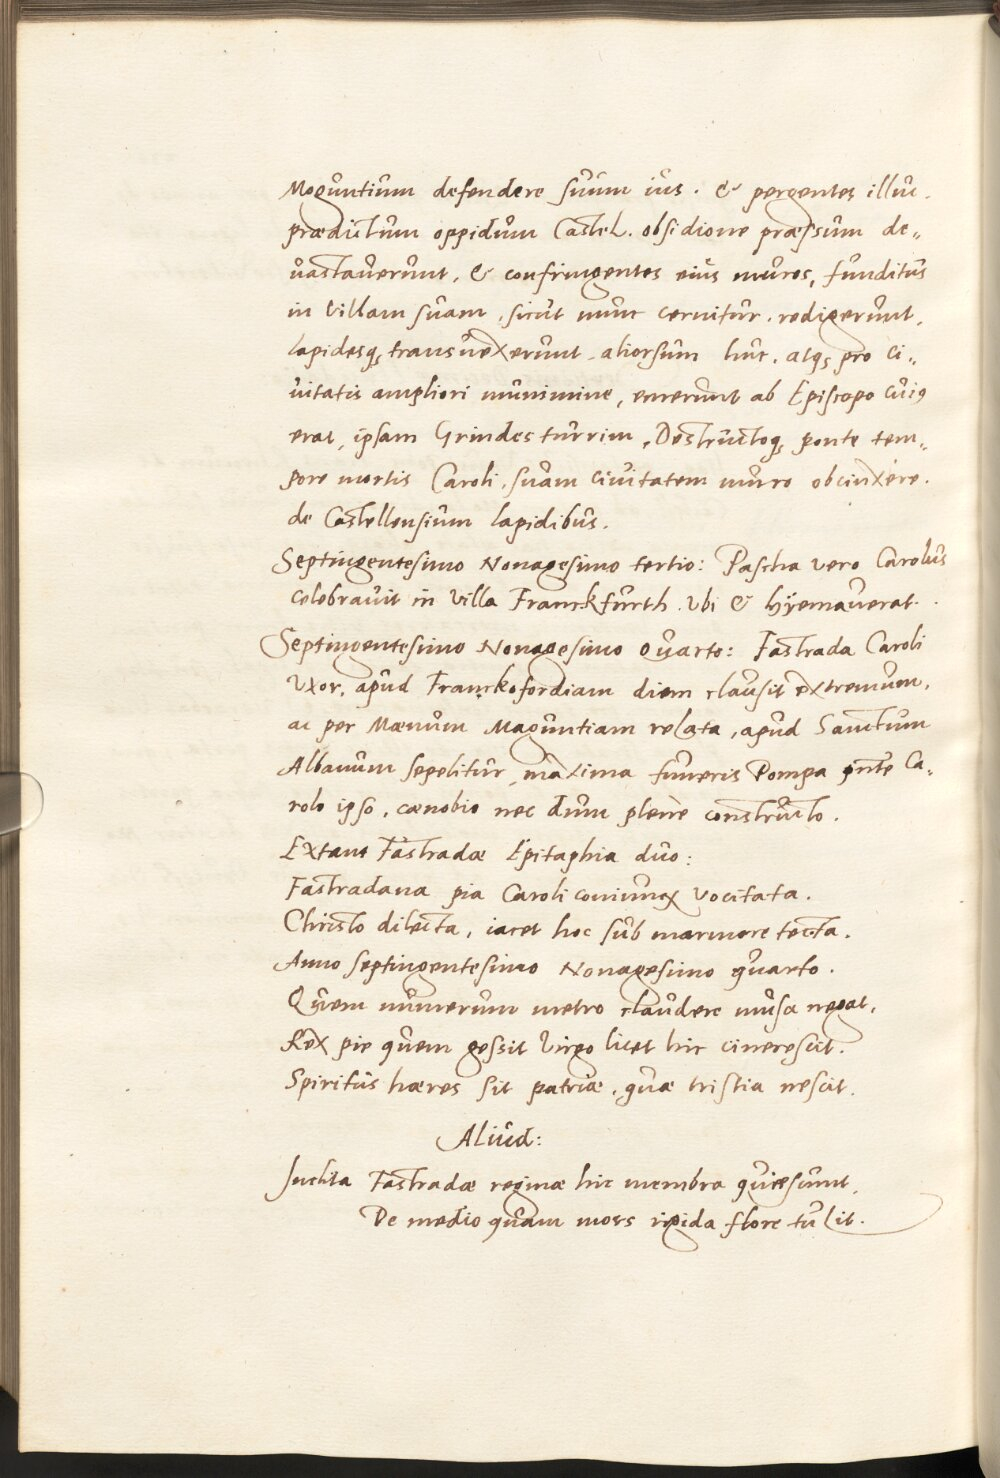 Moguntium defendere suum ius. & pergentes illuc.
prædictum oppidum Castel. obsidione præssum de„
uastauerunt, & confringentes eius muros, funditus
in Villam suam, sicut nunc cernitur. redigerunt.
lapidesq; transuexerunt aliorsum huc. atq; pro Ci„
uitatis ampliori munimine, emerunt ab Episcopo cui9
erat, ipsam Grindes turrim, Destructoq; ponte tem„
pore mortis Caroli, suam ciuitatem muro obcinxere.
de Castellensium lapidibus.
Septingentesimo Nonagesimo tertio: Pascha vero Carolus
celebrauit in Villa Franckfurth. Vbi & hÿemauerat.
Septingentesimo Nonagesimo Quarto: Fastrada Caroli
Vxor, apud Franckofordiam diem clausit extremum,
ac per Mænum Maguntiam relata, apud Sanctum
Albanum sepelitur, maxima funeris Pompa pnte Ca„
rolo ipso, cænobio nec dum plene constructo.
Extant Fastradæ Epitaphia duo:
Fastradana pia Caroli coniunx vocitata.
Christo dilecta, iacet hoc sub marmore tecta.
Anno septingentesimo Nonagesimo quarto.
Quem numerum metro claudere musa negat,
Rex pie quem gessit Virgo licet hic cinerescit.
Spiritus hæres sit patriæ, quæ tristia nescit.
Aliud:
Inclita Fastradæ reginæ hic membra quiescunt,
De medio quam mors rigida flore tulit.